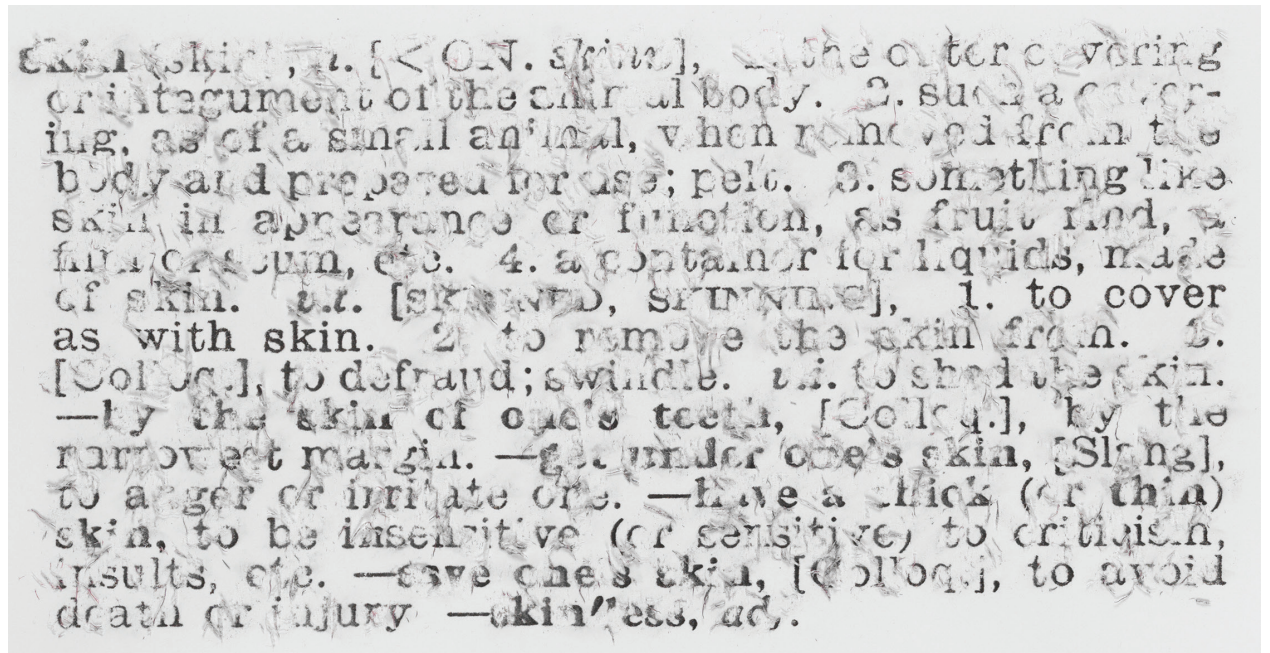 skin (skin), n. [< ON. skinn], 1. the outer covering
or integument of the animal body. 2. such a cover-
ing, as of a small animal, when removed from the
body and prepared for use; pelt. 3. something like
skin in appearance or function, as fruit rind, a
film or scum, etc. 4. a container for liquids, made
of skin. v.t. [SKINNED, SKINNING], 1. to cover
as with skin. 2. to remove the skin from. 3.
[Colloq.], to defraud; swindle. v.i. to shed the skin.
—by the skin of one's teeth, [Colloq.], by the
narrowest margin. —get under one's skin, [Slang],
to anger or irritate one. —have a thick (or thin)
skin, to be insensitive (or sensitive) to criticism,
insults, etc. —save one's skin, [Colloq.], to avoid
death or injury —skin"less, adj.